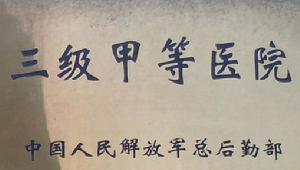 三级甲等医院
中国人民解放军总后勤部